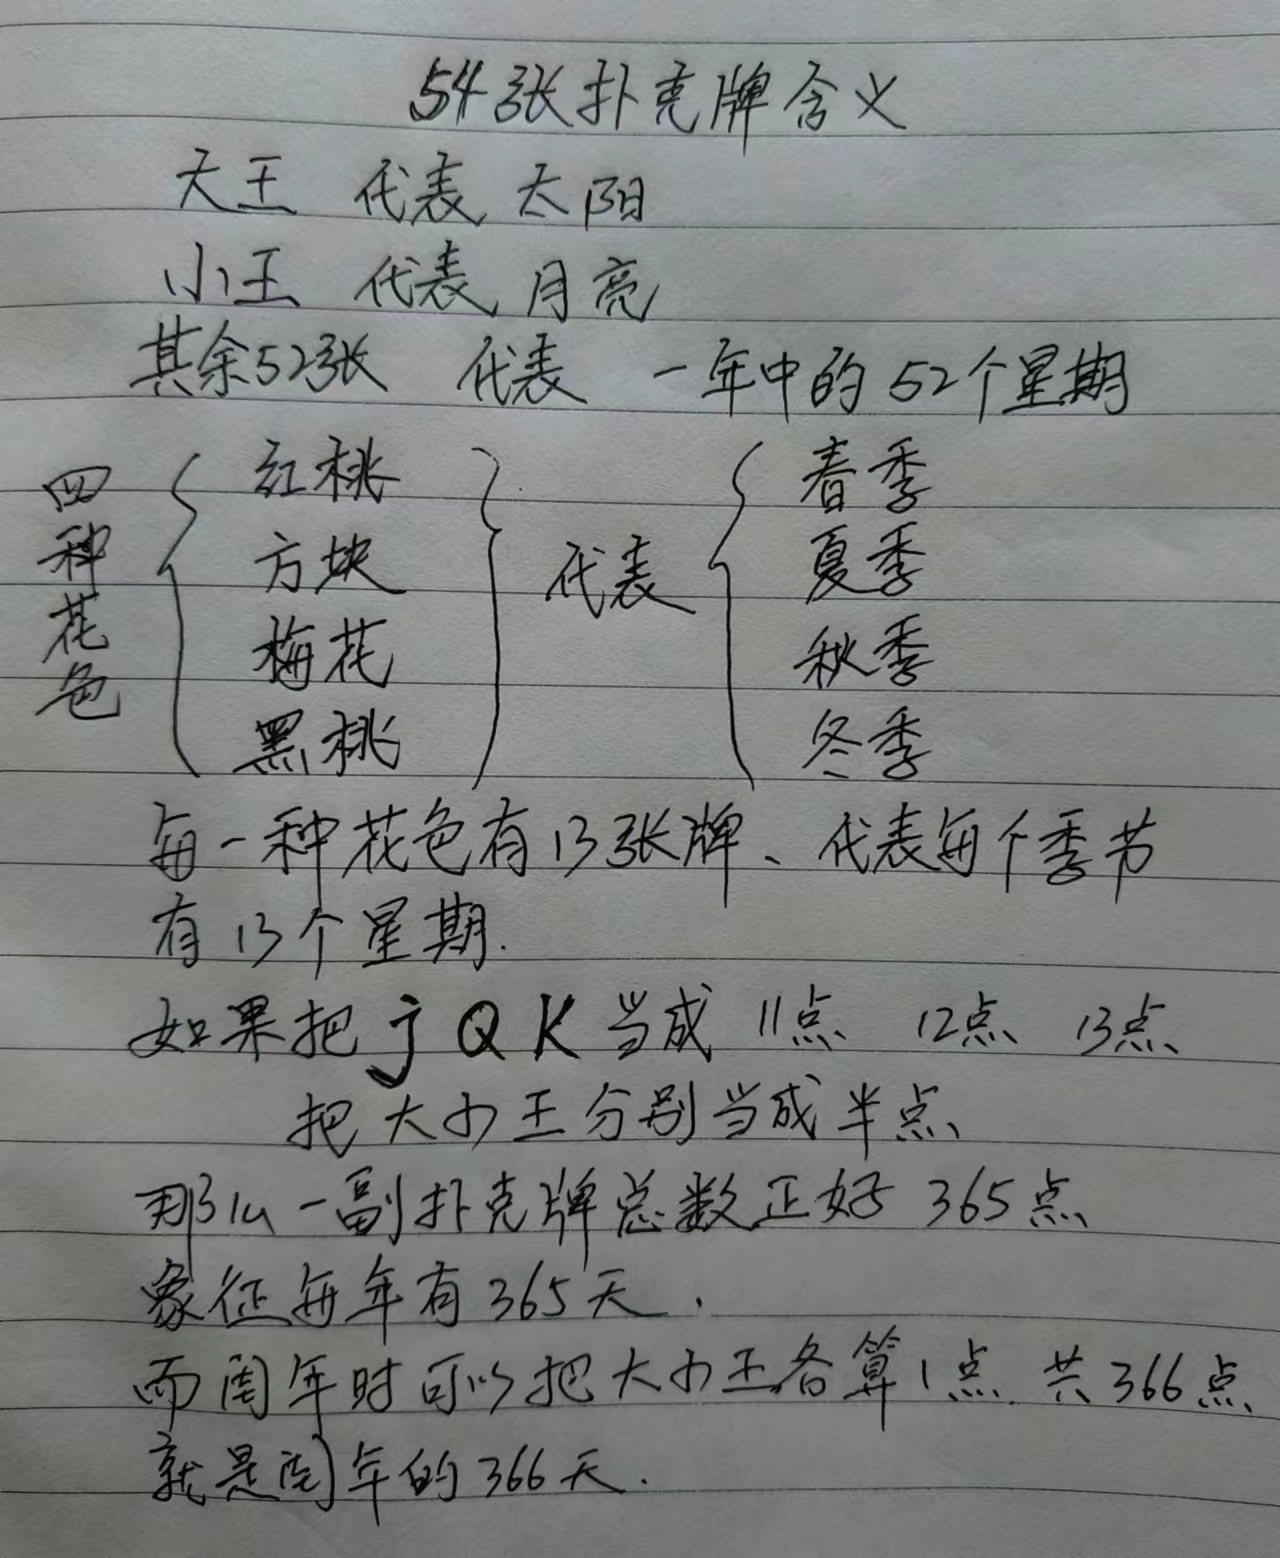 54张扑克牌含义
大王 代表 太阳
小王 代表 月亮
其余52张 代表 一年中的52个星期
四种花色
红桃
方块
梅花
黑桃
代表
春季
夏季
秋季
冬季
每一种花色有13张牌、代表每个季节
有13个星期.
如果把 j Q K 当成 11点 12点 13点
把大小王分别当成半点
那么一副扑克牌总数正好 365点
象征每年有365天.
而闰年时可以把大小王各算1点 共366点
就是闰年的366天.